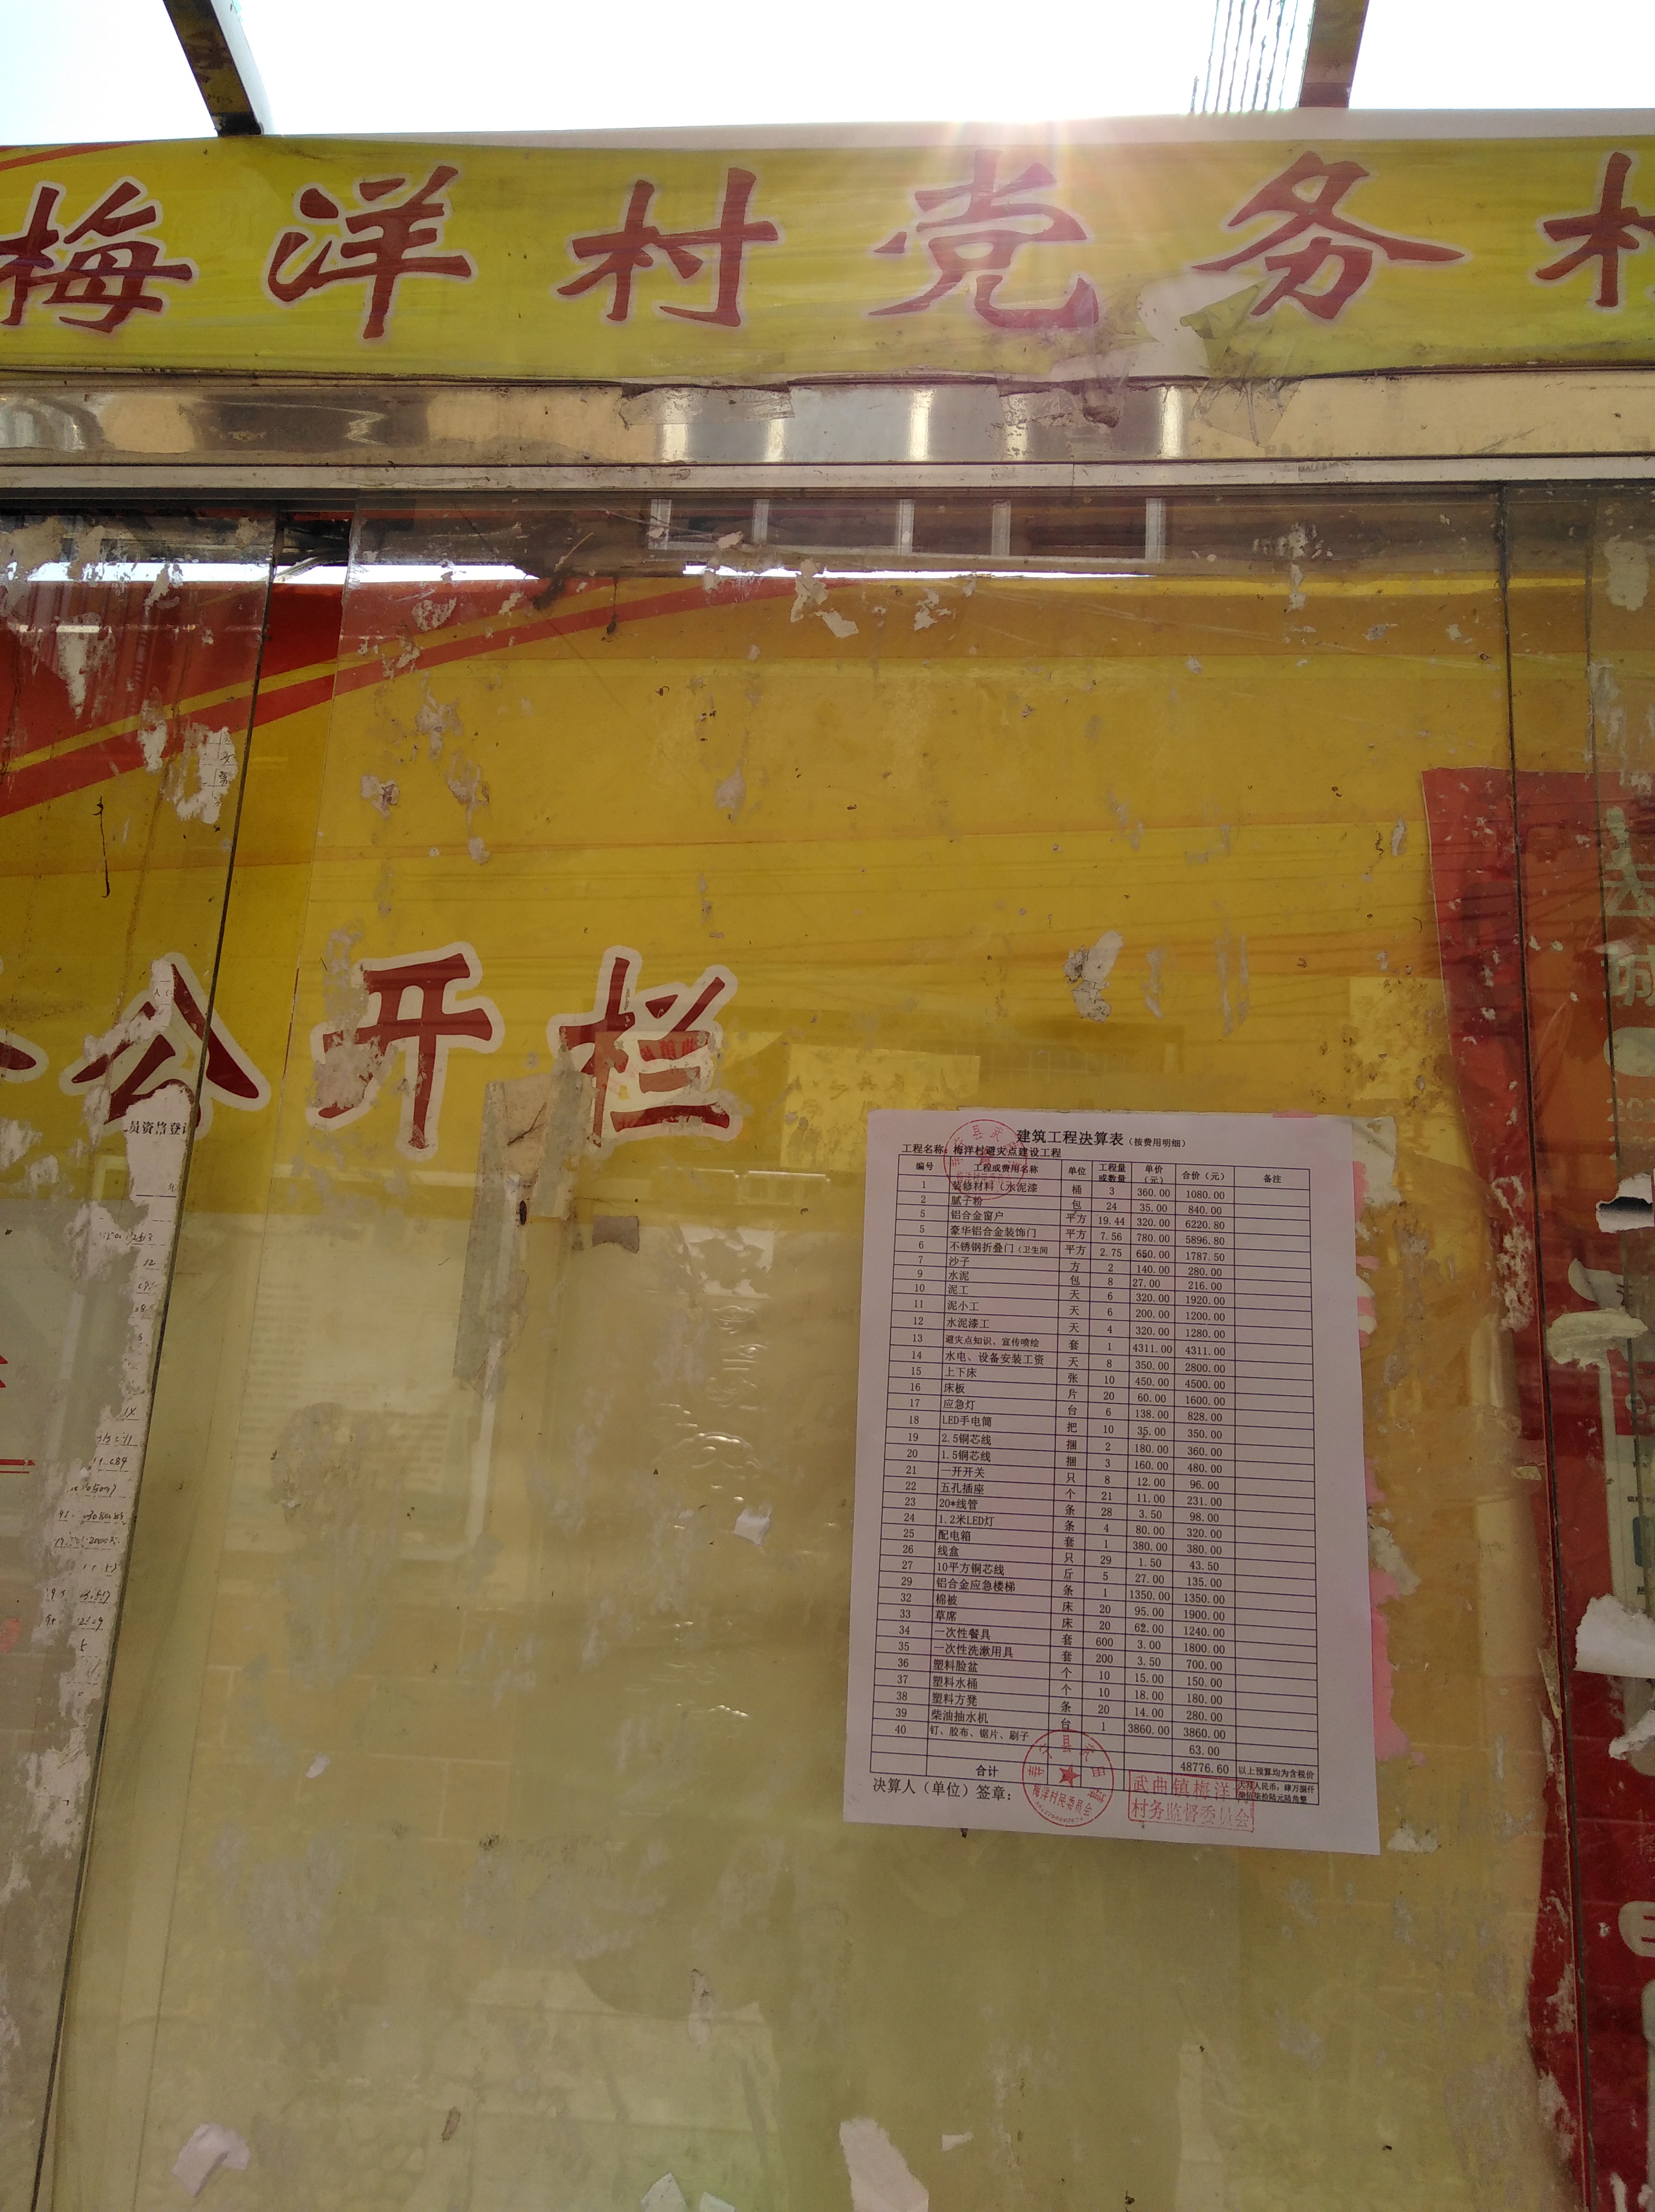 梅洋村党务村
公开栏
建筑工程决算表（按费用明细）
工程名称：梅洋村避灾点建设工程
编号 工程或费用名称 单位 工程量或数量 单价（元） 合价（元） 备注
1 装修材料（水泥漆 桶 3 360.00 1080.00
2 腻子粉 包 24 35.00 840.00
5 铝合金窗户 平方 19.44 320.00 6220.80
5 豪华铝合金装饰门 平方 7.56 780.00 5896.80
6 不锈钢折叠门（卫生间 平方 2.75 650.00 1787.50
7 沙子 方 2 140.00 280.00
9 水泥 包 8 27.00 216.00
10 泥工 天 6 320.00 1920.00
11 泥小工 天 6 200.00 1200.00
12 水泥漆工 天 4 320.00 1280.00
13 避灾点知识、宣传喷绘 套 1 4311.00 4311.00
14 水电、设备安装工资 天 8 350.00 2800.00
15 上下床 张 10 450.00 4500.00
16 床板 片 20 60.00 1600.00
17 应急灯 台 6 138.00 828.00
18 LED手电筒 把 10 35.00 350.00
19 2.5铜芯线 捆 2 180.00 360.00
20 1.5铜芯线 捆 3 160.00 480.00
21 一开开关 只 8 12.00 96.00
22 五孔插座 个 21 11.00 231.00
23 20*线管 条 28 3.50 98.00
24 1.2米LED灯 条 4 80.00 320.00
25 配电箱 套 1 380.00 380.00
26 线盒 只 29 1.50 43.50
27 10平方铜芯线 斤 5 27.00 135.00
29 铝合金应急楼梯 条 1 1350.00 1350.00
32 棉被 床 20 95.00 1900.00
33 草席 床 20 62.00 1240.00
34 一次性餐具 套 600 3.00 1800.00
35 一次性洗漱用具 套 200 3.50 700.00
36 塑料脸盆 个 10 15.00 150.00
37 塑料水桶 个 10 18.00 180.00
38 塑料方凳 条 20 14.00 280.00
39 柴油抽水机 台 1 3860.00 3860.00
40 钉、胶布、锯片、刷子 63.00
合计 48776.60 以上预算均为含税价
决算人（单位）签章：
梅洋村民委员会
武曲镇梅洋
村务监督委员会
员资格登记